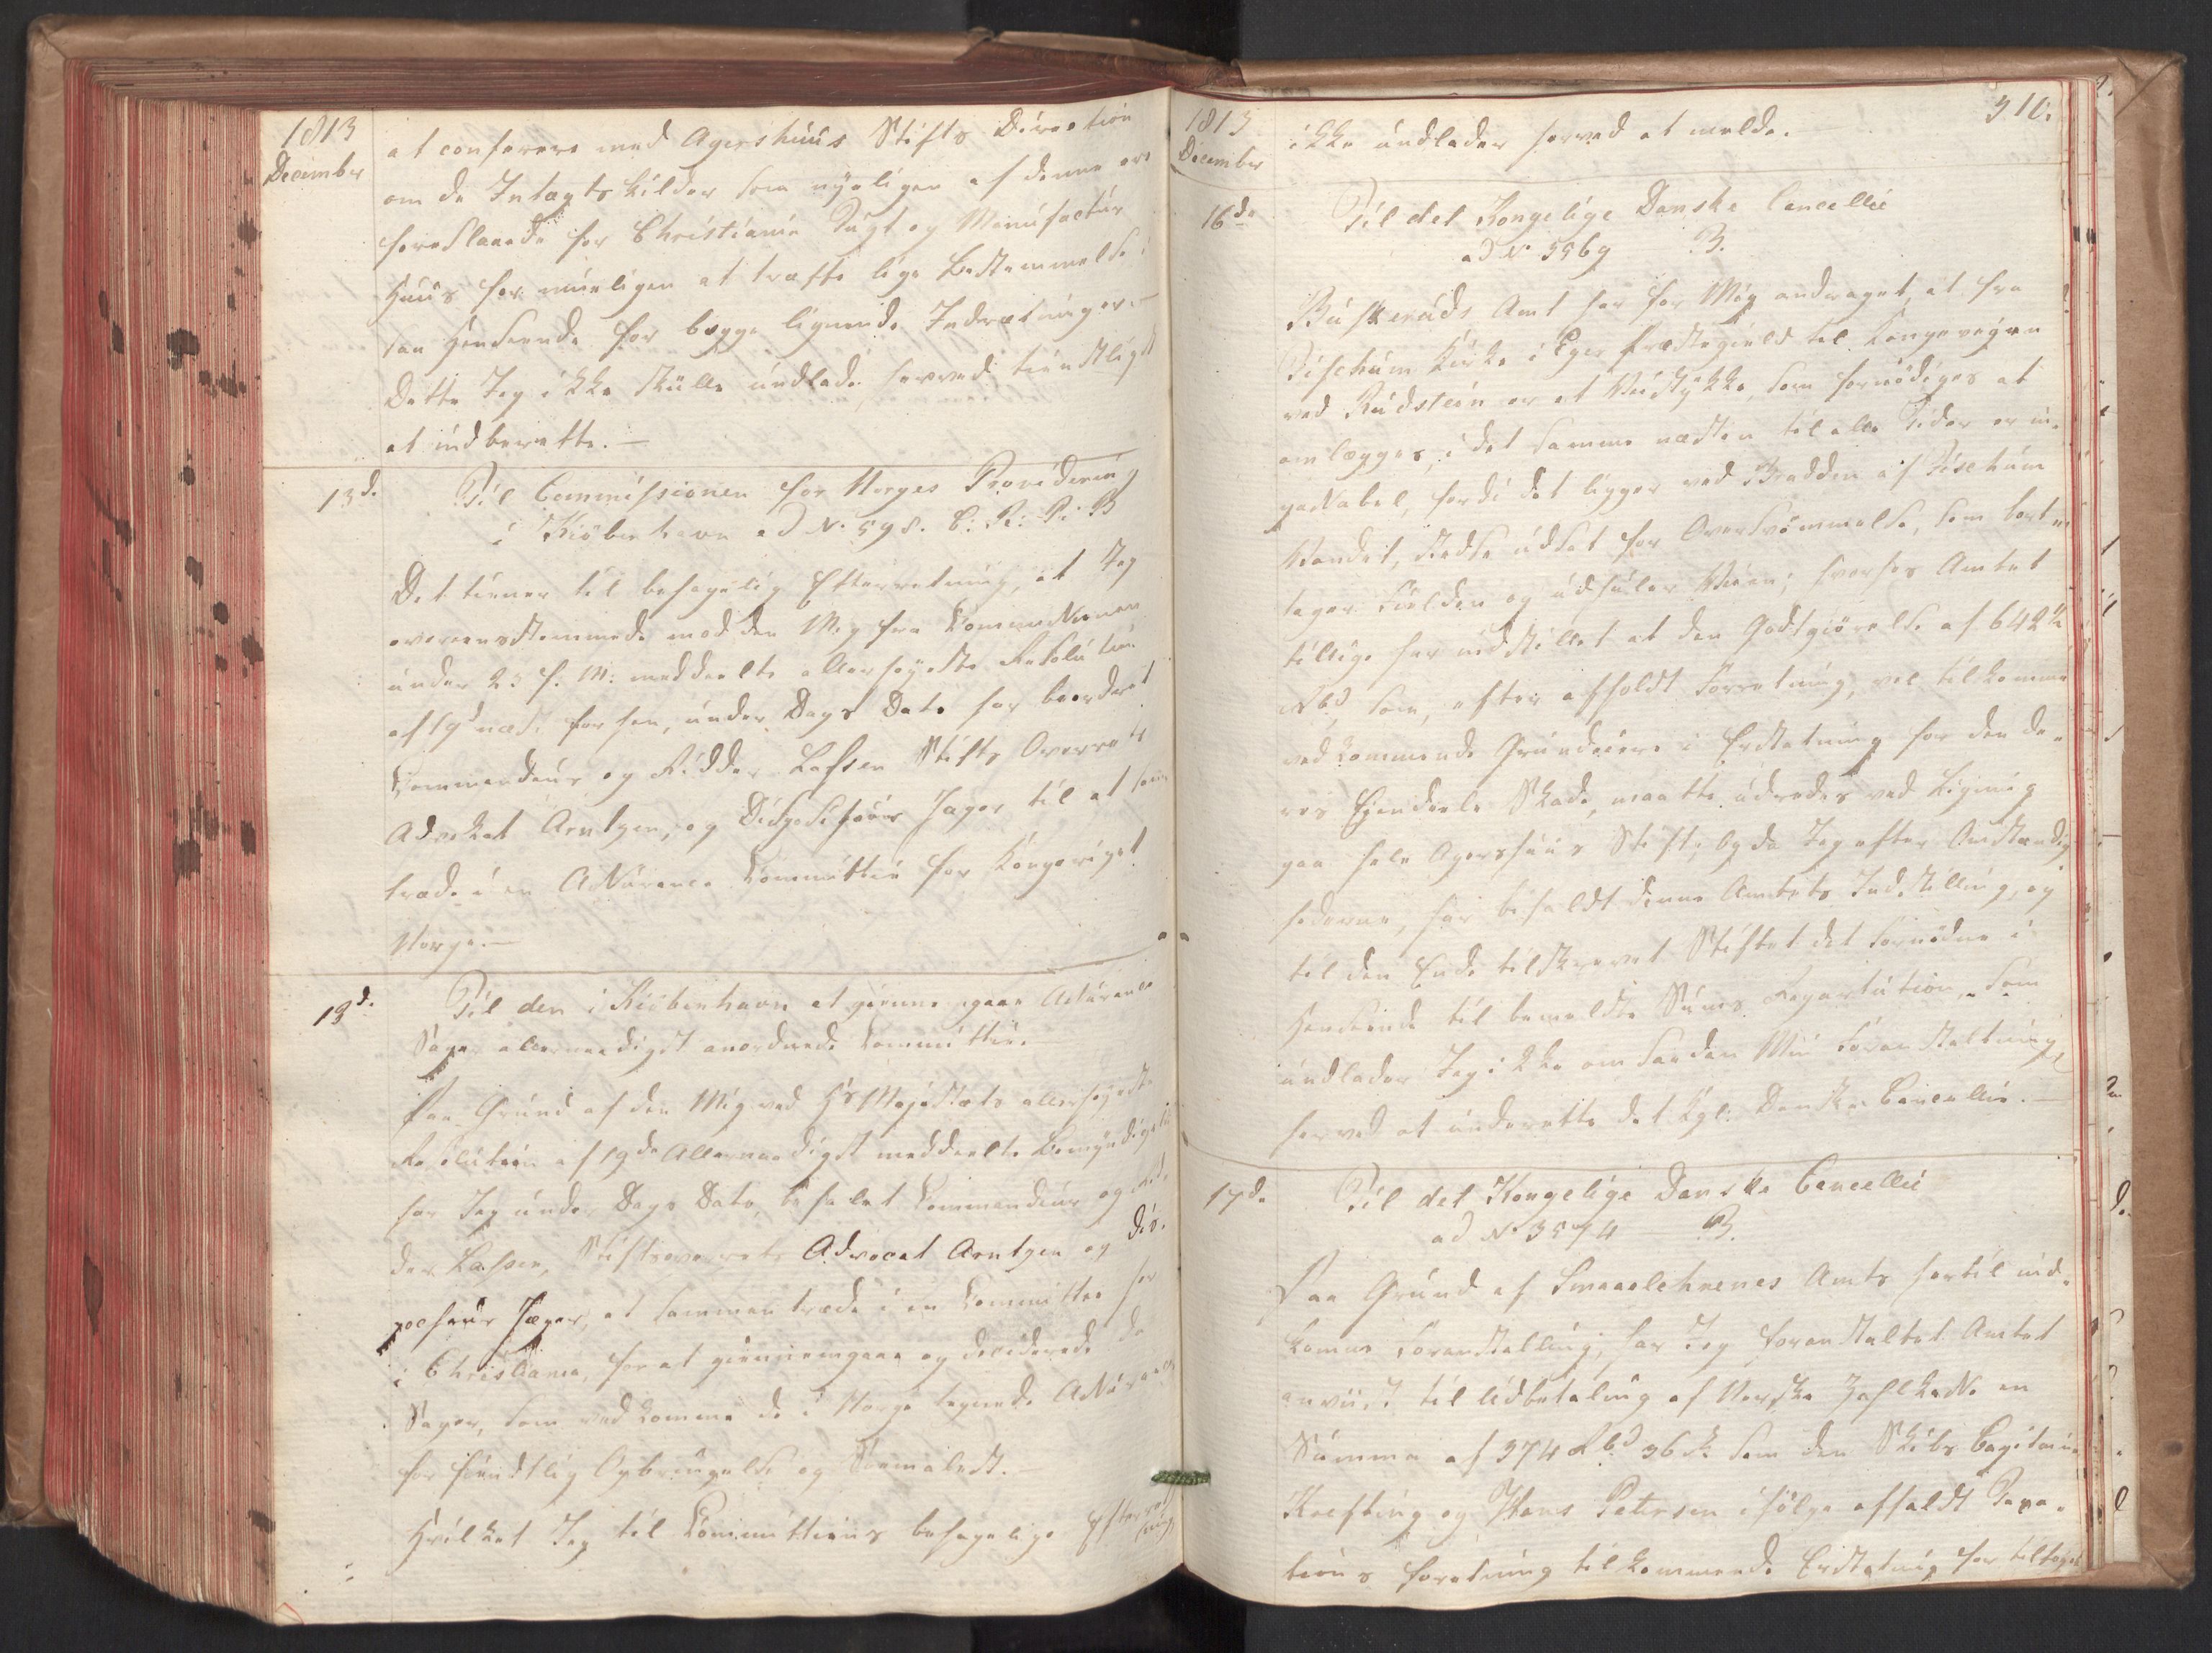 1813
December
at conferere med Agershuus Stifts Direction
om de Indtægtskilder som nyeligen af denne ere
foreslaaede for Christiania Tugt og Manufactur
Huus for mueligen at træffe lige Bestemmelse i
saa Henseende for begge lignende Indretninger.—
Dette Jeg ikke skulle undlade herved tienstligst
at indberette.—
13d.
Til Commissionen for Norges Providering
i Kiöbenhavn ad No 598. C: R: P: B
Det tiener til behagelig Efterretning, at Jeg
overeensstemmende med den Mig fra Commissionen
under 23 f. M: meddeelte allerhøyeste Resolution
af 19d næst forhen, under Dags Dato har beordret
Commandeur og Ridder Lassen Stifts Overrets
Advokat Arntzen, og Dispacheur Jæger til at sammen
træde i en Assurance Committee for Kongeriget
Norge.—
13d.
Til den i Kiöbenhavn at giennemgaae Assurance
Sager allernaadigst anordnede Committee.
Paa Grund af den Mig ved Hs Majestæts allerhøyeste
Resolution af 19de Allernaadigst meddeelte Bemyndigelse
har Jeg under Dags Dato, befalet Commandeur og Rid-
der Lassen, Stiftsoverrets Advocat Arntzen og Dis-
pacheur Jæger, at sammentræde i en Committee her
i Christiania, for at giennemgaae og decidere de
Sager, som vedkomme de i Norge tegnede Assurancer
for fiendtlig Opbringelse og Krigsmolest.—
Hvilket Jeg til Committeens behagelige Efterret
ning
1813
December
310.
ikke undlader herved at melde.—
16de
Til det Kongelige Danske Cancellie
ad No 3569 B.
Buskeruds Amt har for Mig andraget, at fra
Fischum Kirke i Eger Præstegield til Kongeveyen
ved Rudstein er et Veistykke, som fornödiges at
omlægges, i det samme næsten til alle Tider er im-
passabel, fordi det ligger ved Bredden af Fischum
Vandet, stedse udsat for Oversvömmelse, som bort-
tager Fielden og udhuler Veien; hvorhos Amtet
tillige har indstillet at den Godtgiörelse af 642
Rbd som, efter afholdt Forretning, vil tilkomme
vedkommende Grundeiere i Erstatning for den de-
res Eiendeele Skade, maatte udredes ved Ligning
paa hele Agershuus Stift; og da Jeg efter Omstændig
hederne, har bifaldt denne Amtets Indstilling, og
til den Ende tilskrevet Stiftet det fornödne i
Henseende til bemeldte Sums Repartition, som
undlader Jeg ikke om saadan Min Foranstaltning
herved at underrette det Kgl: Danske Cancellie.—
17d.
Til det Kongelige Danske Cancellie
ad No 3574 B.
Paa Grund af Smaalehnenes Amts hertil ind-
komne Forestilling, har Jeg foranstaltet Amtet
anviist til Udbetaling af Norske Zahlkasse en
Summa af 374 Rbd 36 s som den Skibs Capitaine
Krefting og Hans Petersen ifölge afholdt Taxa-
tions forretning tilkommende Erstatning for tilföyet